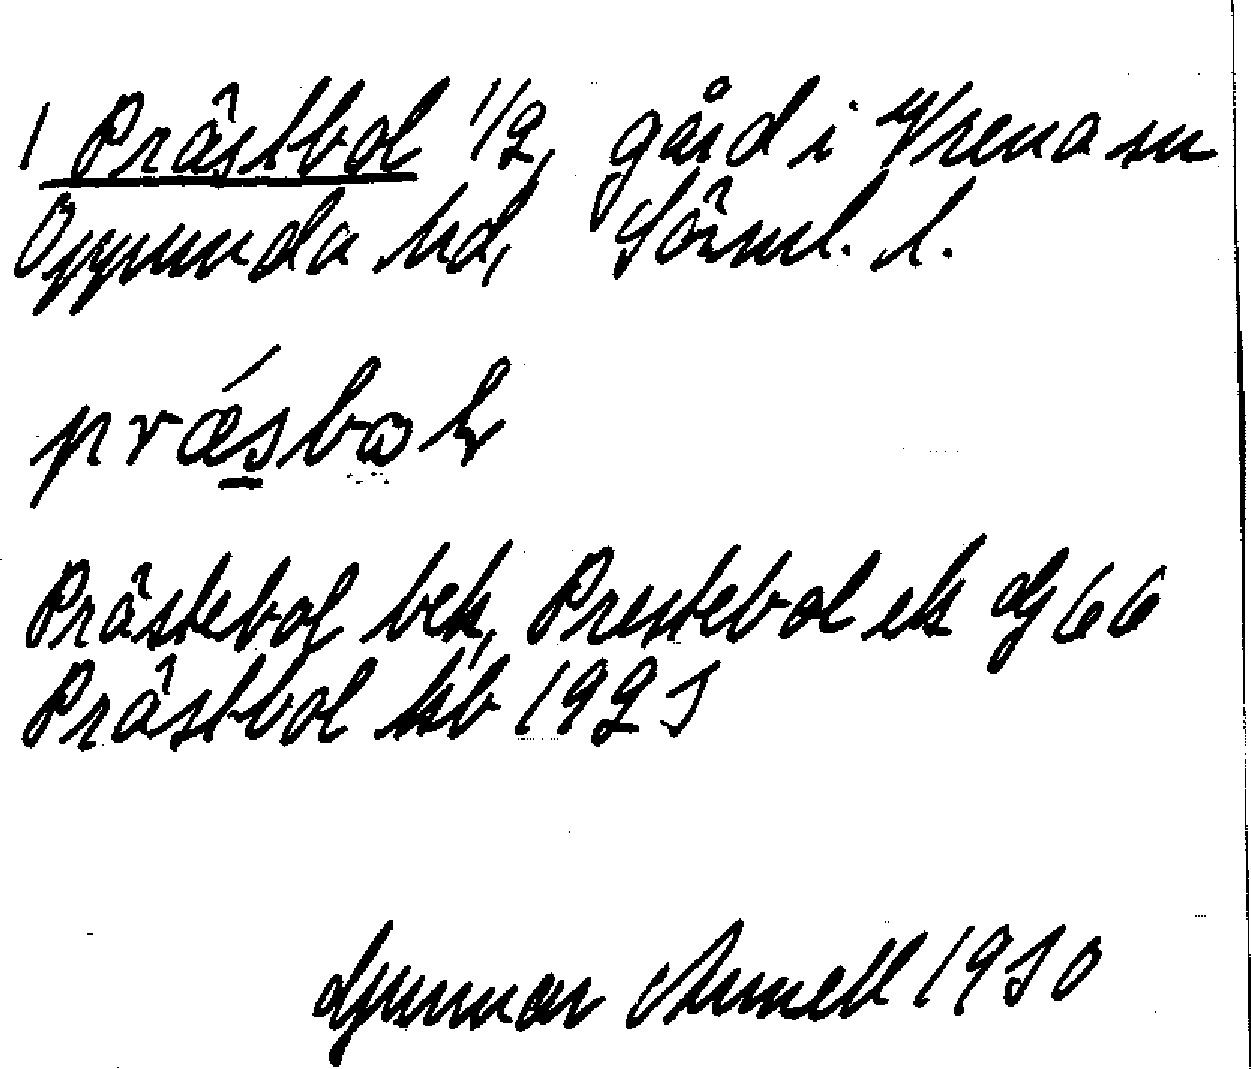 1 Prästbol 1/2, gård i Vrena sn
Oppunda hd, Sörml. l.
præ´sboḷ
Prästebol bek, Prestebol ek Gf 66
Prästbol kb 1925
Gunnar Arnell 1950